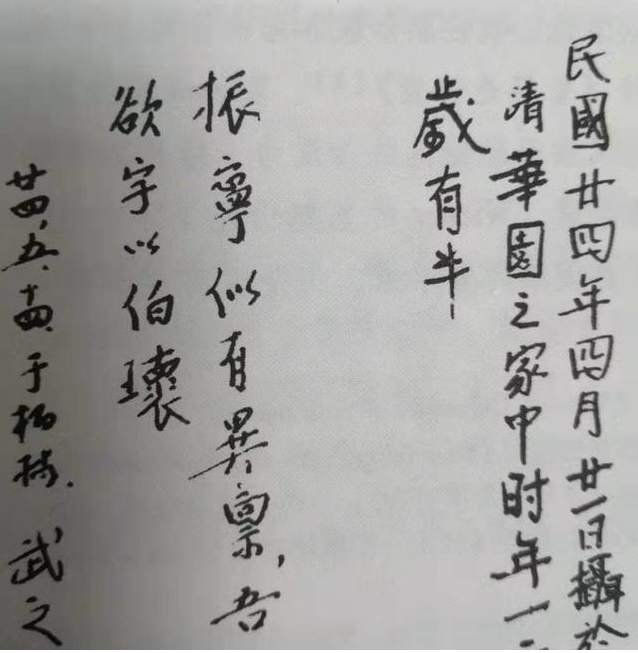 民國廿四年四月廿一日攝於
清華園之家中时年一二
歲有半
振寧似有異稟,吾
欲字以伯瓌
廿四,五,十四,于柏林.武之